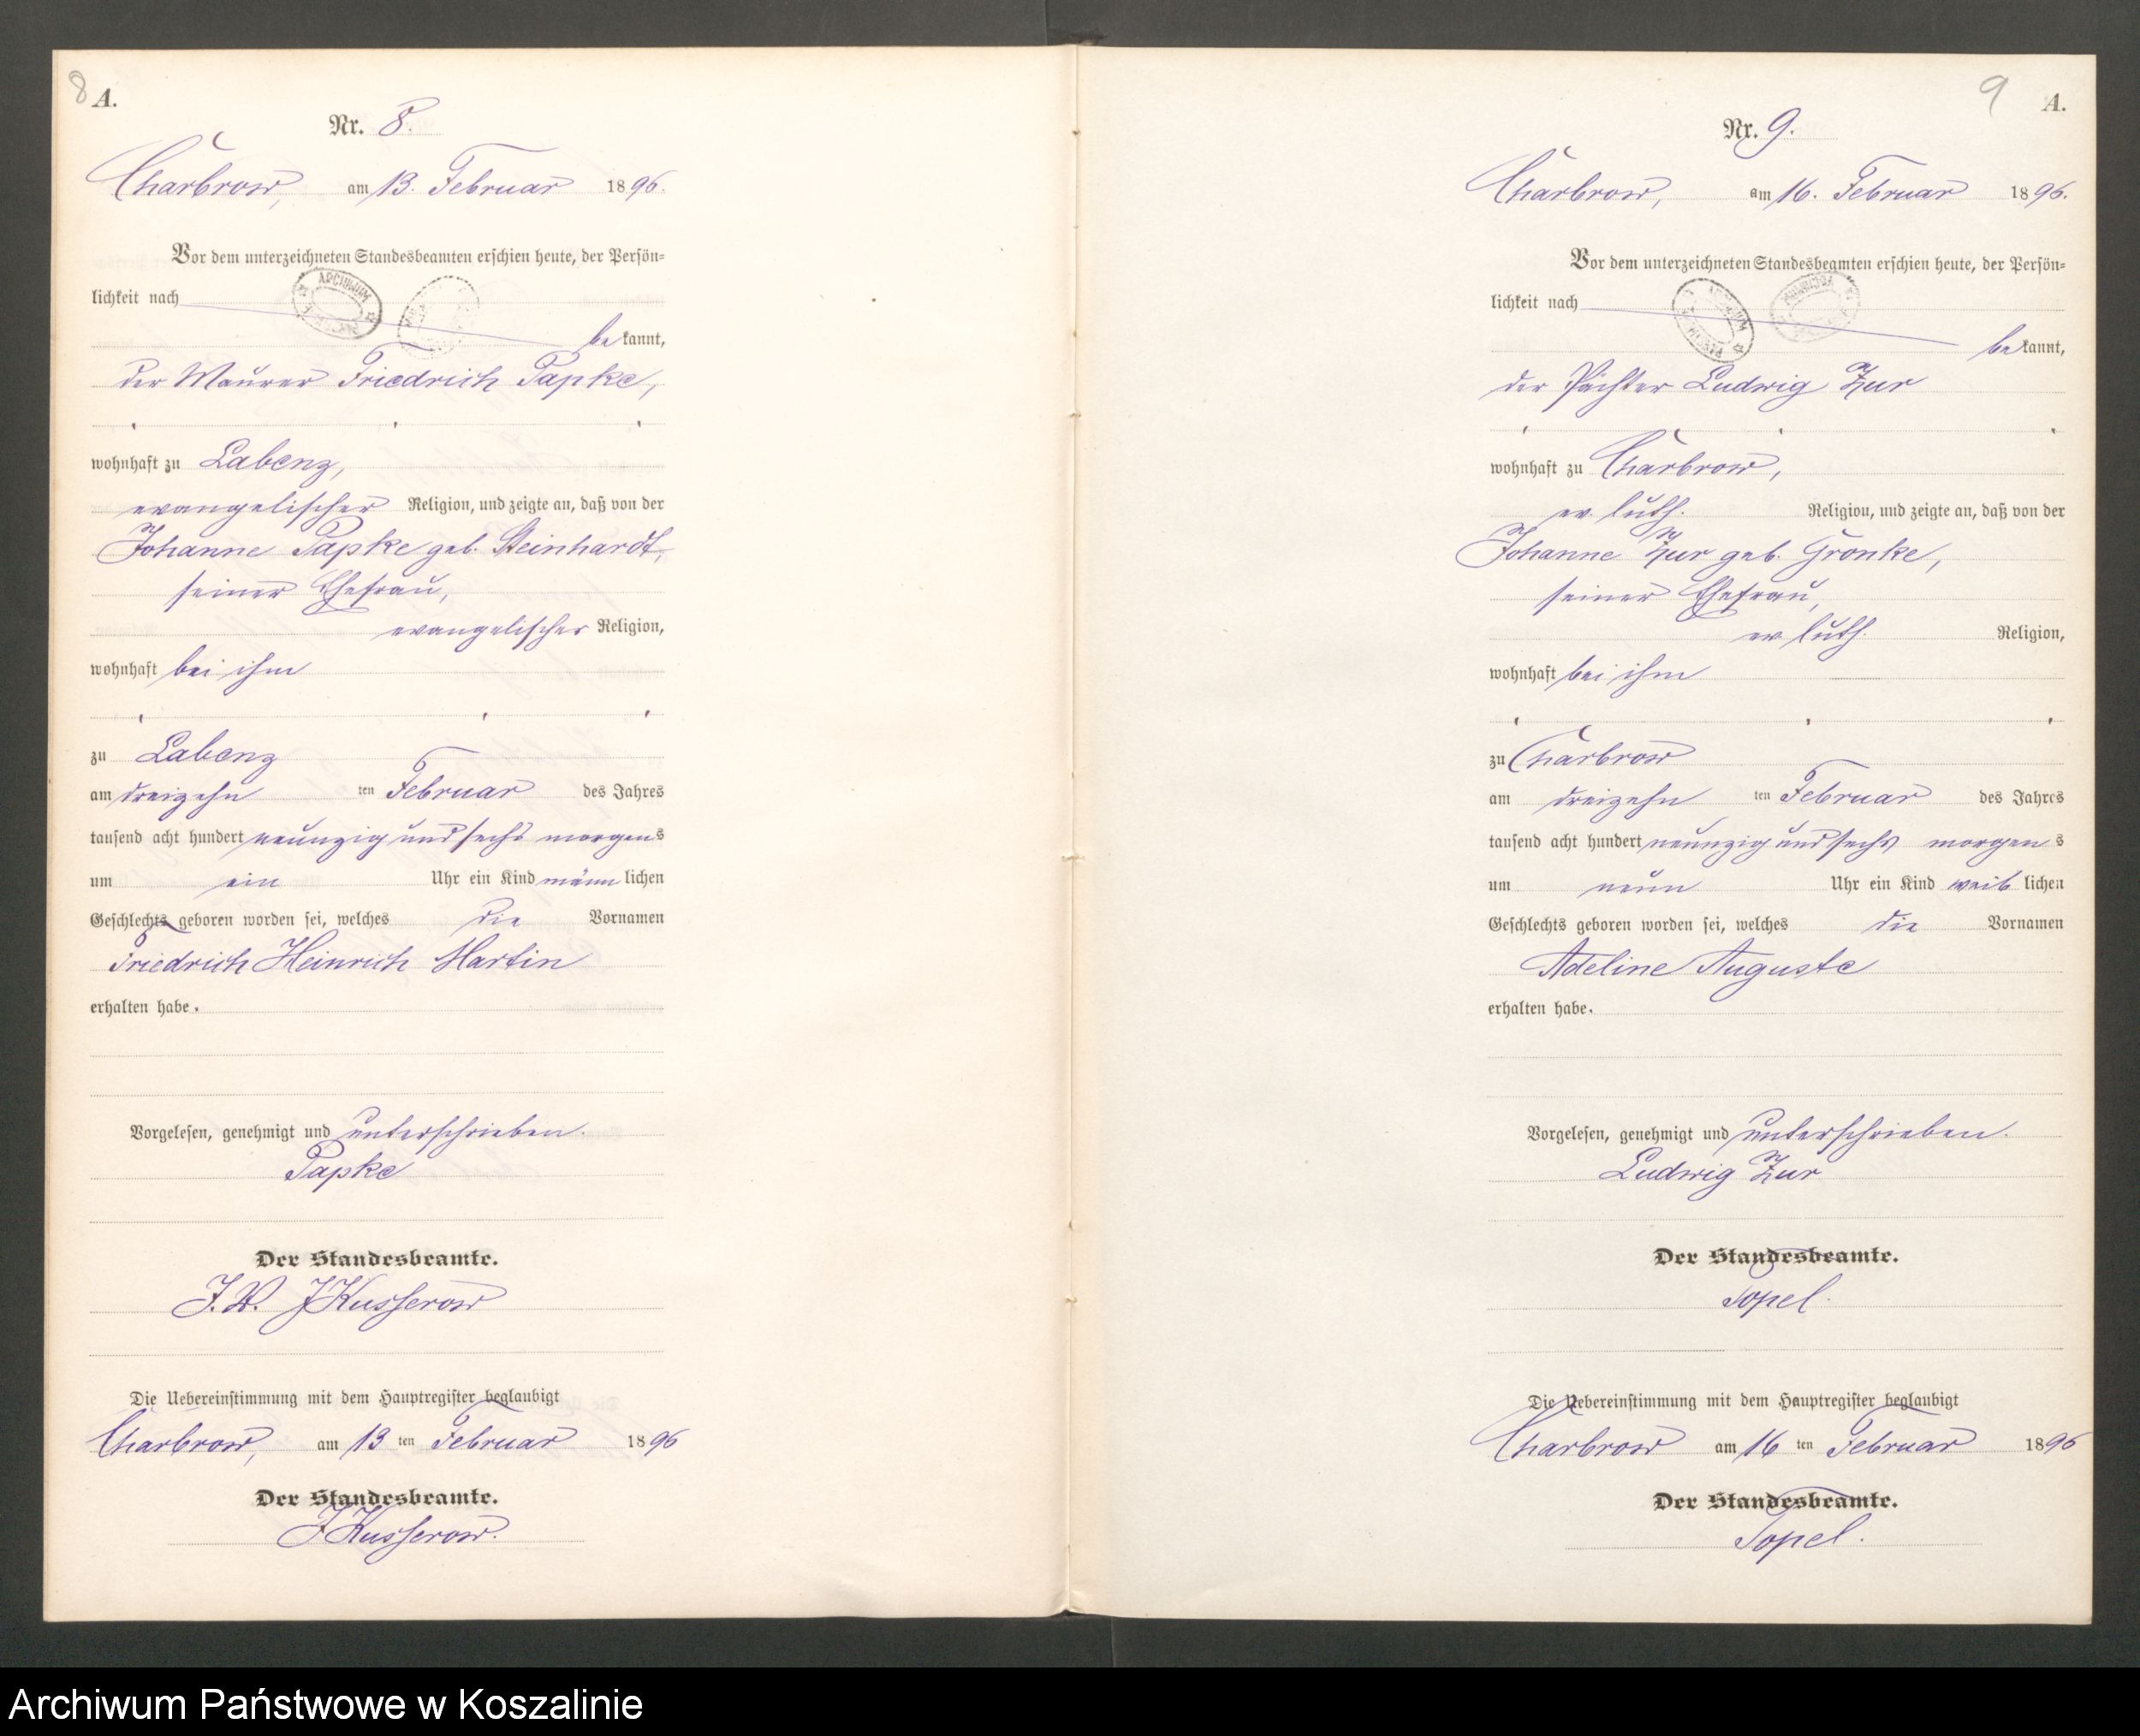 8 A.
Nr. 8.
Charbrow, am 13. Februar 1896.
Vor dem unterzeichneten Standesbeamten erschien heute, der Persön=
lichkeit nach
ARCHIWUM
be kannt,
der Maurer Friedrich Papke,
wohnhaft zu Labenz,
evangelischer Religion, und zeigte an, daß von der
Johanne Papke geb. Steinhardt,
seiner Ehefrau,
evangelischer Religion,
wohnhaft bei ihm
zu Labenz
am dreizehn ten Februar des Jahres
tausend acht hundert neunzig und sechs morgens
um ein Uhr ein Kind männ lichen
Geschlechts geboren worden sei, welches die Vornamen
Friedrich Heinrich Martin
erhalten habe.
Vorgelesen, genehmigt und unterschrieben.
Papke
Der Standesbeamte.
J. V. JKusserow
Die Uebereinstimmung mit dem Hauptregister beglaubigt
Charbrow, am 13 ten Februar 1896
Der Standesbeamte.
JKusserow.
9 A.
Nr. 9.
Charbrow, am 16. Februar 1896.
Vor dem unterzeichneten Standesbeamten erschien heute, der Persön=
lichkeit nach
ARCHIWUM
be kannt,
der Pächter Ludwig Zur
wohnhaft zu Charbrow,
ev. luth. Religion, und zeigte an, daß von der
Johanne Zur geb. Gronke,
seiner Ehefrau,
ev luth. Religion,
wohnhaft bei ihm
zu Charbrow
am dreizehn ten Februar des Jahres
tausend acht hundert neunzig und sechs morgen s
um neun Uhr ein Kind weib lichen
Geschlechts geboren worden sei, welches die Vornamen
Adeline Auguste
erhalten habe.
Vorgelesen, genehmigt und unterschrieben.
Ludwig Zur
Der Standesbeamte.
Topel.
Die Uebereinstimmung mit dem Hauptregister beglaubigt
Charbrow am 16 ten Februar 1896
Der Standesbeamte.
Topel.
Archiwum Państwowe w Koszalinie